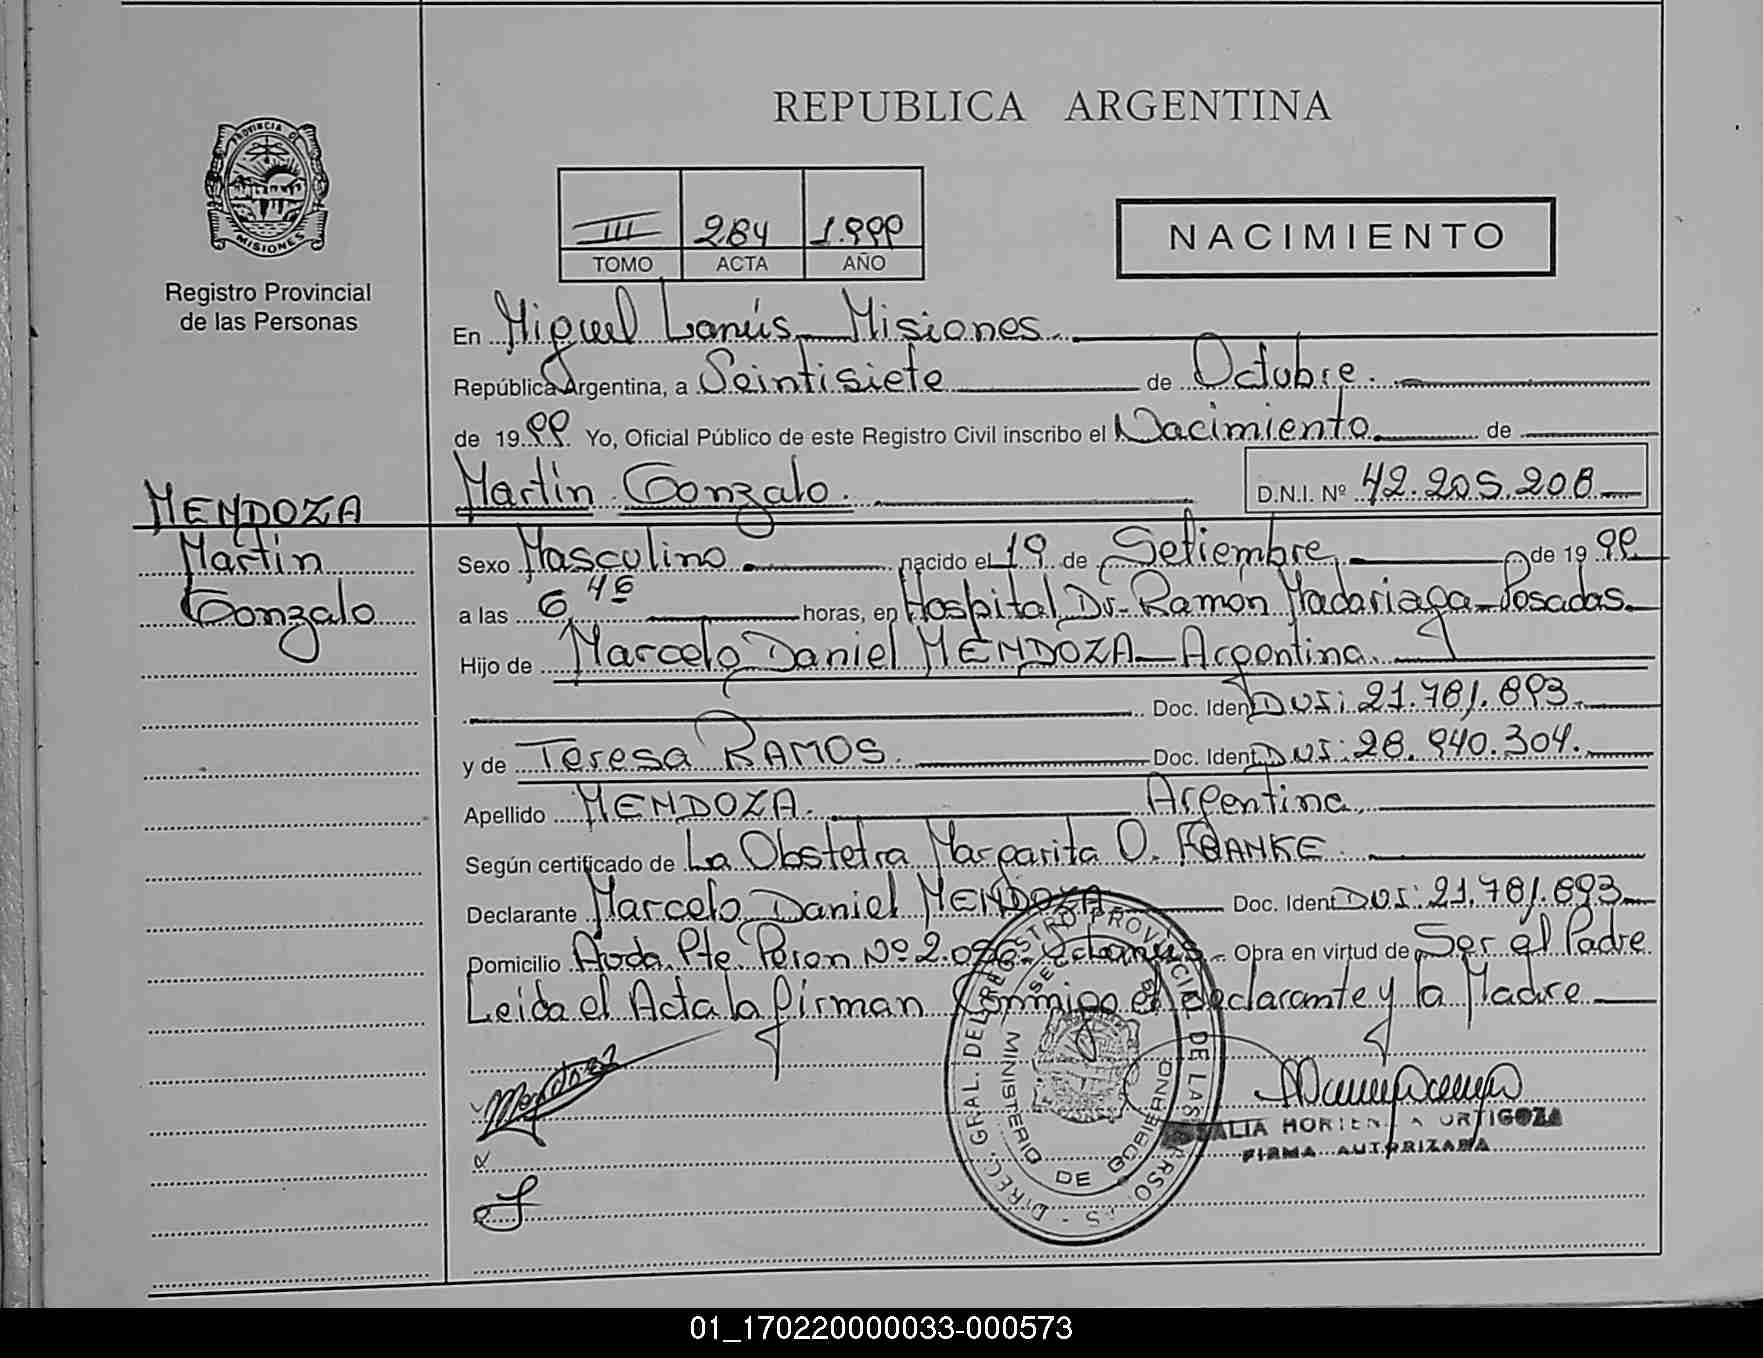 REPUBLICA ARGENTINA
PROVINCIA DE
MISIONES
Registro Provincial
de las Personas
III 284 1.999
TOMO ACTA AÑO
NACIMIENTO
En Miguel Lanús, Misiones.
República Argentina, a Veintisiete de Octubre.
de 1999. Yo, Oficial Público de este Registro Civil inscribo el Nacimiento de
Martin Gonzalo.
D.N.I. Nº 42.205.208
MENDOZA
Martin
Gonzalo
Sexo Masculino nacido el 19 de Setiembre de 1999
a las 6,45 horas, en Hospital Dr. Ramón Madariaga-Posadas.
Hijo de Marcelo Daniel MENDOZA-Argentina.
Doc. Ident DNI: 21.781.893.
y de Teresa RAMOS. Doc. Ident DNI: 28.940.304.
Apellido MENDOZA. Argentina.
Según certificado de La Obstetra Margarita O. FRANKE.
Declarante Marcelo Daniel MENDOZA Doc. Ident DNI: 21.781.893
Domicilio Avda. Pte. Peron Nº 2.086- Obra en virtud de Ser él Padre.
Leida el Acta la firman Conmigo el declarante y la Madre
Mendoza
DIREC. GRAL. DEL REGISTRO PROVINCIAL DE LAS PERSONAS
MINISTERIO DE GOBIERNO
ORTIGOZA
FIRMA AUTORIZADA
01_170220000033-000573